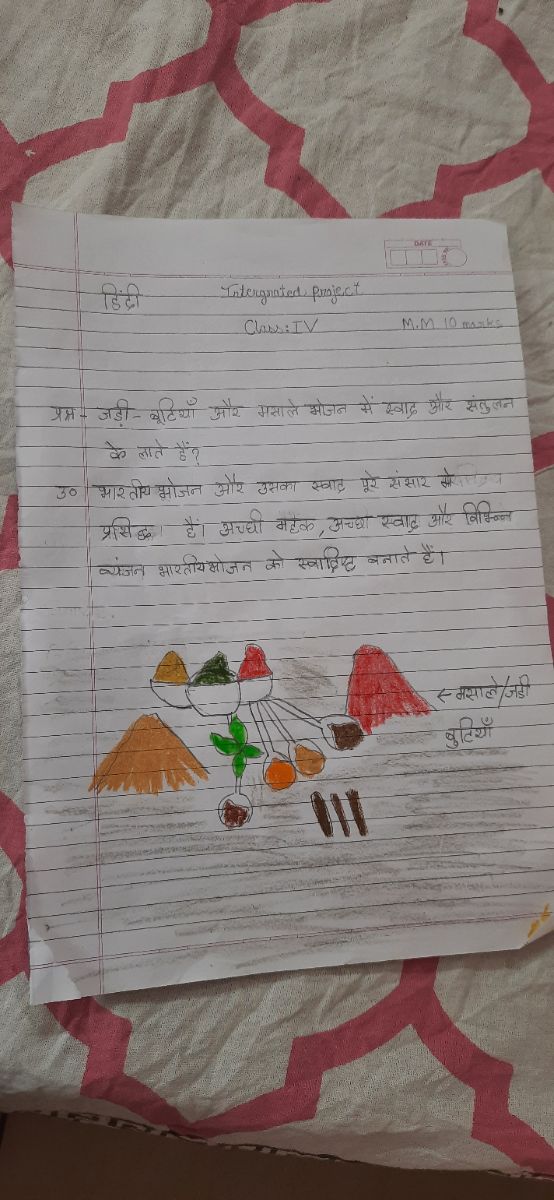 DATE
हिंदी Intergrated project
Class: IV M.M 10 marks
प्रश्न - जड़ी - बूटियाँ और मसाले भोजन में स्वाद और संतुलन
के लाते हैं?
उ० भारतीय भोजन और उसका स्वाद पूरे संसार मे
प्रसिद्ध। हैं। अच्छी महक, अच्छा स्वाद और विभिन्न
व्यंजन भारतीयभोजन को स्वादिष्ट बनाते हैं।
← मसाले/जड़ी
बुटियाँ